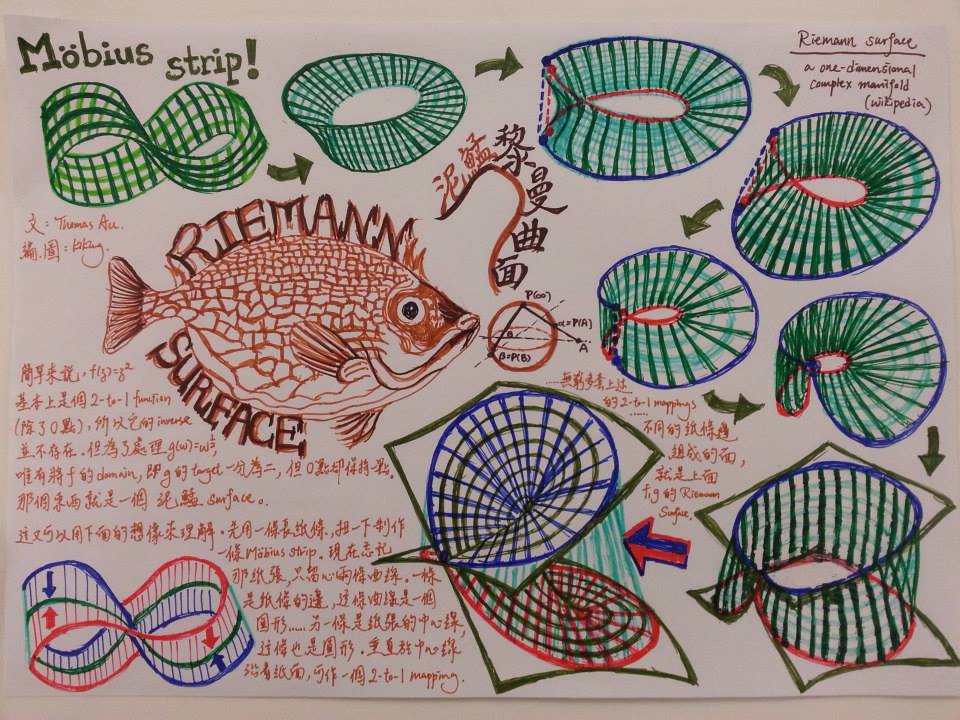 Möbius strip!
Riemann surface
a one-dimensional
complex manifold
(wikipedia)
文：Thomas Au.
編.圖：kikug.
泥鯭
黎曼曲面
RIEMANN
SURFACE
P(∞)
α=P(A)
θ
A
β=P(B)
簡單來說，f(z)=z²
基本上是個 2-to-1 function
(除了0點)，所以它的inverse
並不存在．但為了處理 g(w)=w^½,
唯有將f的domain, 即g的target 一分為二，但0點卻保持一點．
那個東西就是一個 泥鯭 surface。
這又可以用下面的想像來理解．先用一條長紙條，扭一下制作
一條Möbius strip．現在忘記
那紙張，只留心兩條曲線．一條
是紙條的邊，這條曲線是一個
圓形……另一條是紙張的中心線，
這條也是圓形．垂直於中心線
沿着紙面，可作一個2-to-1 mapping.
……無窮多套上述
的2-to-1 mappings
……
不同的紙條邊
組成的面，
就是上面
f,g的Riemann
Surface.